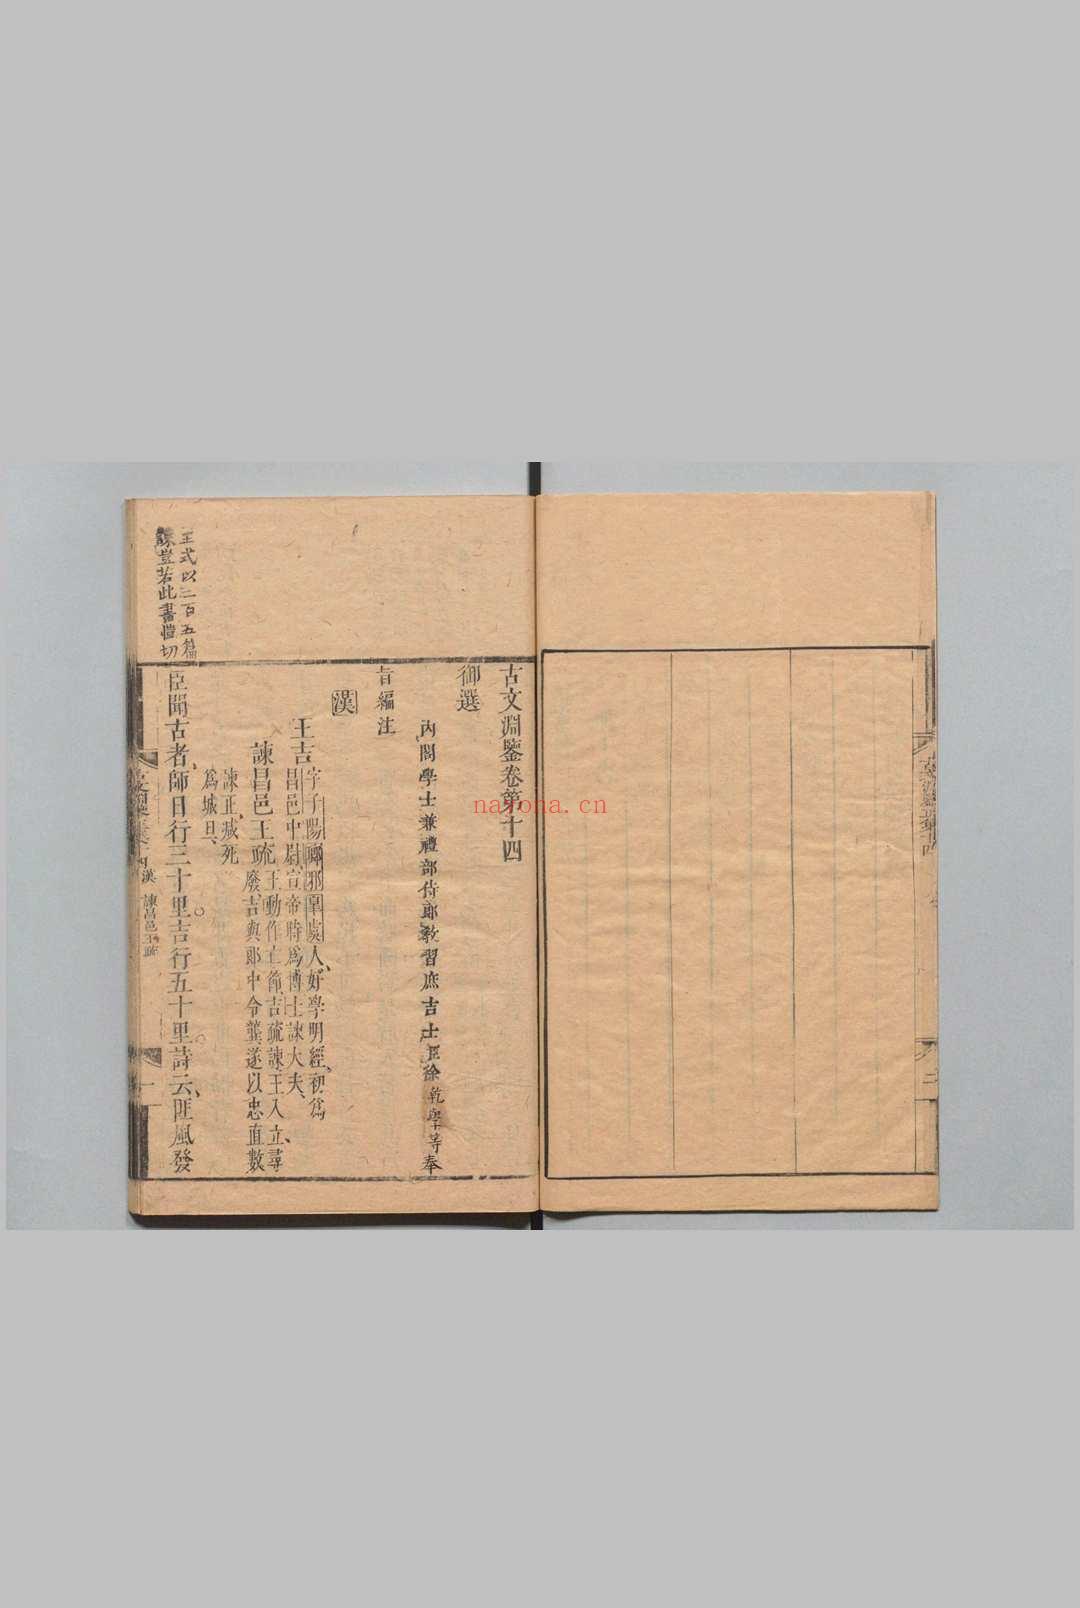 古文淵鑒卷第十四
御選
內閣學士兼禮部侍郎教習庶吉士臣徐乾學等奉
旨編注
漢
王吉
字子陽琅邪皐虞人好學明經初爲
昌邑中尉宣帝時爲博士諫大夫
諫昌邑王疏
王動作亡節吉疏諫王入立尋
廢吉與郎中令龔遂以忠直數
諫正減死
爲城旦
臣聞古者師日行三十里吉行五十里詩云匪風發
王式以三百五篇
諫豈若此書愷切
漢 諫昌邑王疏
一
二
nayona.cn